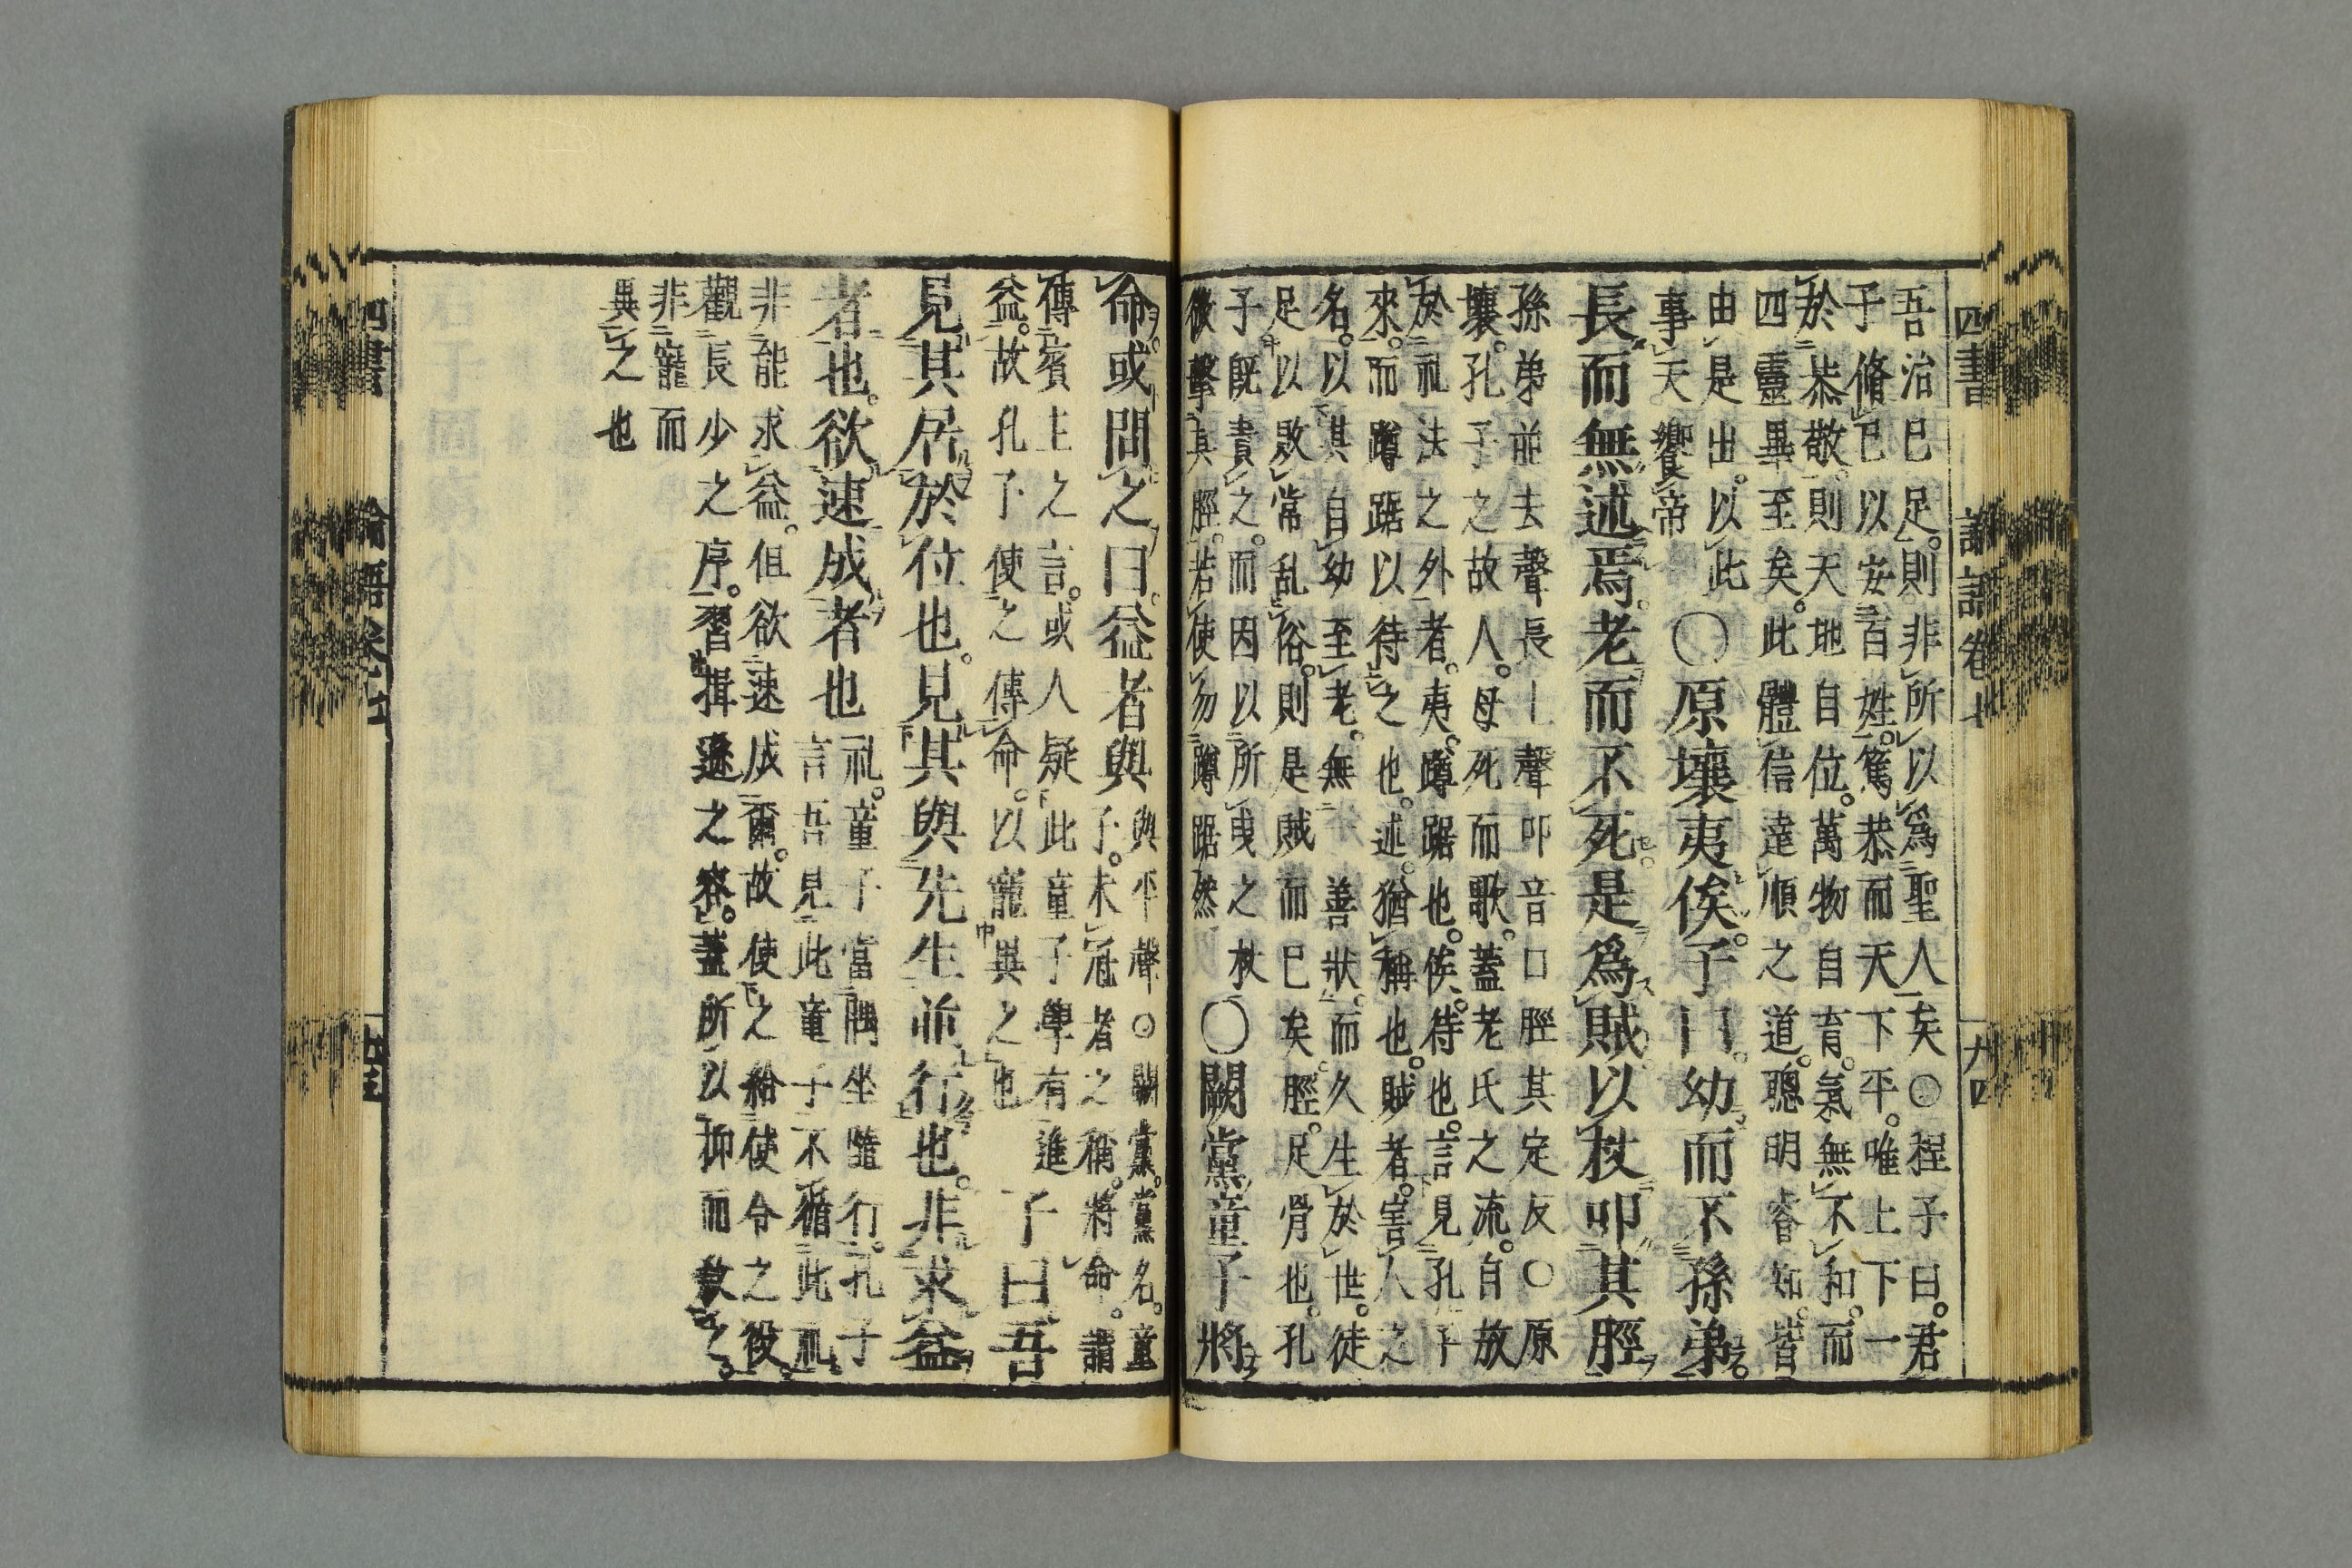 四書 論語卷七 九四
吾治已足則非所以爲聖人矣○程子曰君
子脩已以安百姓篤恭而天下平唯上下一
於恭敬則天地自位萬物自育氣無不和而
四靈畢至矣此體信達順之道聰明睿知皆
由是出以此
事天饗帝
○原壤夷俟子曰幼而不孫弟
長而無述焉老而不死是爲賊以杖叩其脛
孫弟並去聲長上聲叩音口脛其定反○原
壤孔子之故人母死而歌蓋老氏之流自放
於礼法之外者夷蹲踞也俟待也言見孔子
來而蹲踞以待之也述猶稱也賊者害人之
名以其自幼至老無一善狀而久生於世徒
足以敗常乱俗則是賊而已矣脛足骨也孔
子既責之而因以所曳之杖
微擊其脛若使勿蹲踞然
○闕黨童子將
命或問之曰益者與
與平聲○闕黨黨名童
子未冠者之稱將命謂
傳賓主之言或人疑此童子學有進
益故孔子使之傳命以寵異之也
子曰吾
見其居於位也見其與先生並行也非求益
者也欲速成者也
礼童子當隅坐隨行孔子
言吾見此童子不循此礼
非能求益但欲速成爾故使之給使令之役
觀長少之序習揖遜之容蓋所以抑而教之
非寵而
異之也
四書 論語卷七